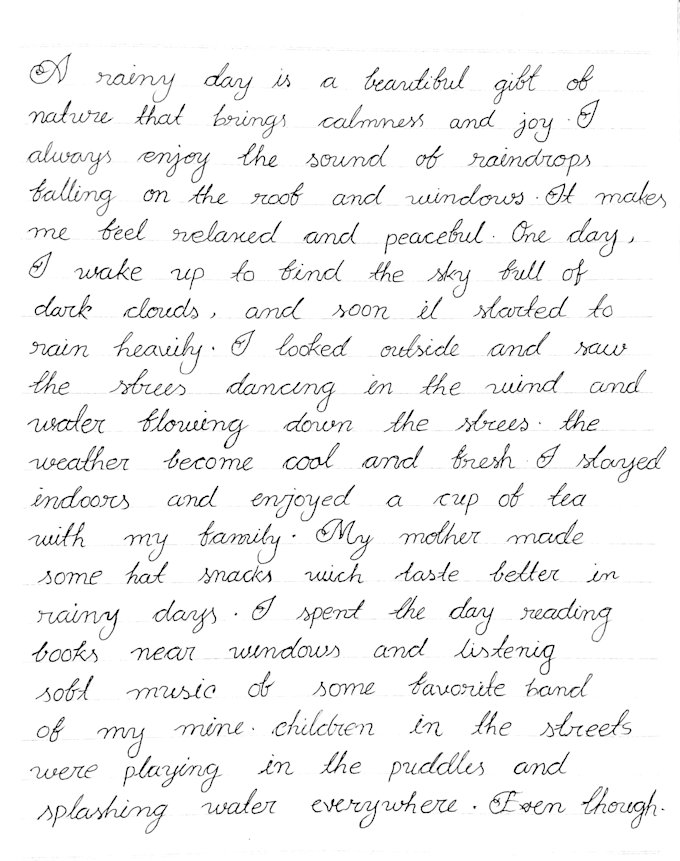 A rainy day is a beautiful gift of
nature that brings calmness and joy. I
always enjoy the sound of raindrops
falling on the roof and windows. It makes
me feel relaxed and peaceful. One day,
I wake up to find the sky full of
dark clouds, and soon it started to
rain heavily. I looked outside and saw
the strees dancing in the wind and
water flowing down the strees. the
weather become cool and fresh. I stayed
indoors and enjoyed a cup of tea
with my family. My mother made
some hat snacks wich taste better in
rainy days. I spent the day reading
books near windows and listenig
soft music of some favorite band
of my mine. children in the streets
were playing in the puddles and
splashing water everywhere. Even though.